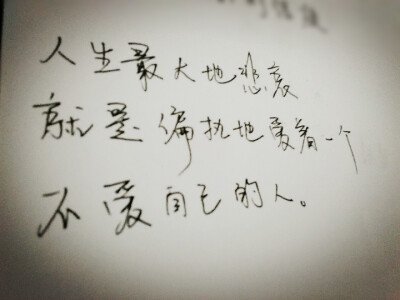 人生最大地悲哀
就是偏执地爱着一个
不爱自己的人。